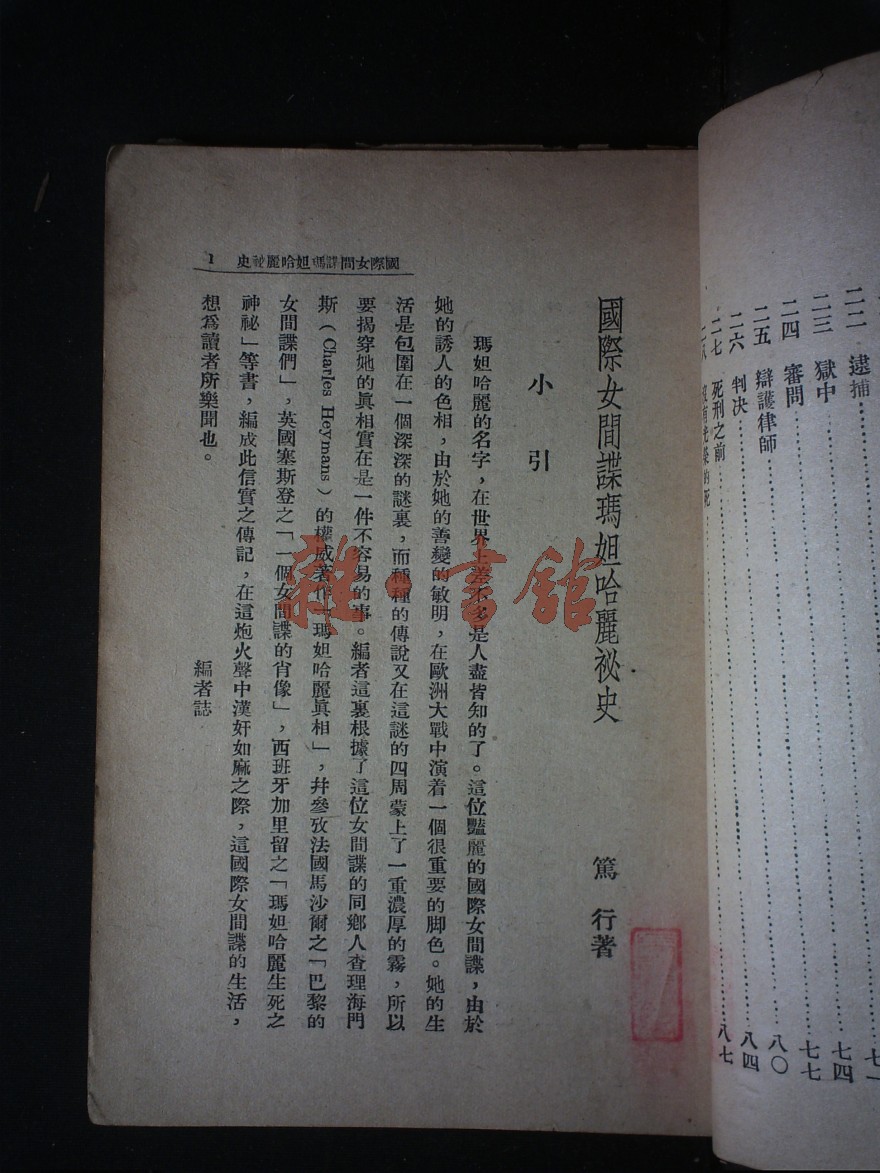 二二 逮捕 七一
二三 獄中 七四
二四 審問 七七
二五 辯護律師 八〇
二六 判决 八四
二七 死刑之前 八七
國際女間諜瑪妲哈麗祕史
篤行著
小引
瑪妲哈麗的名字，在世界上差不多是人盡皆知的了。這位豔麗的國際女間諜，由於
她的誘人的色相，由於她的善變的敏明，在歐洲大戰中演着一個很重要的脚色。她的生
活是包圍在一個深深的謎裏，而種種的傳說又在這謎的四周蒙上了一重濃厚的霧，所以
要揭穿她的眞相實在是一件不容易的事。編者這裏根據了這位女間諜的同鄉人查理海門
斯（Charles Heymans）的權威著作「瑪妲哈麗眞相」，并參攷法國馬沙爾之「巴黎的
女間諜們」，英國塞斯登之「一個女間諜的肖像」，西班牙加里留之「瑪妲哈麗生死之
神祕」等書，編成此信實之傳記，在這炮火聲中漢奸如麻之際，這國際女間諜的生活，
想爲讀者所樂聞也。
編者誌
國際女間諜瑪妲哈麗祕史 1
雜·書館